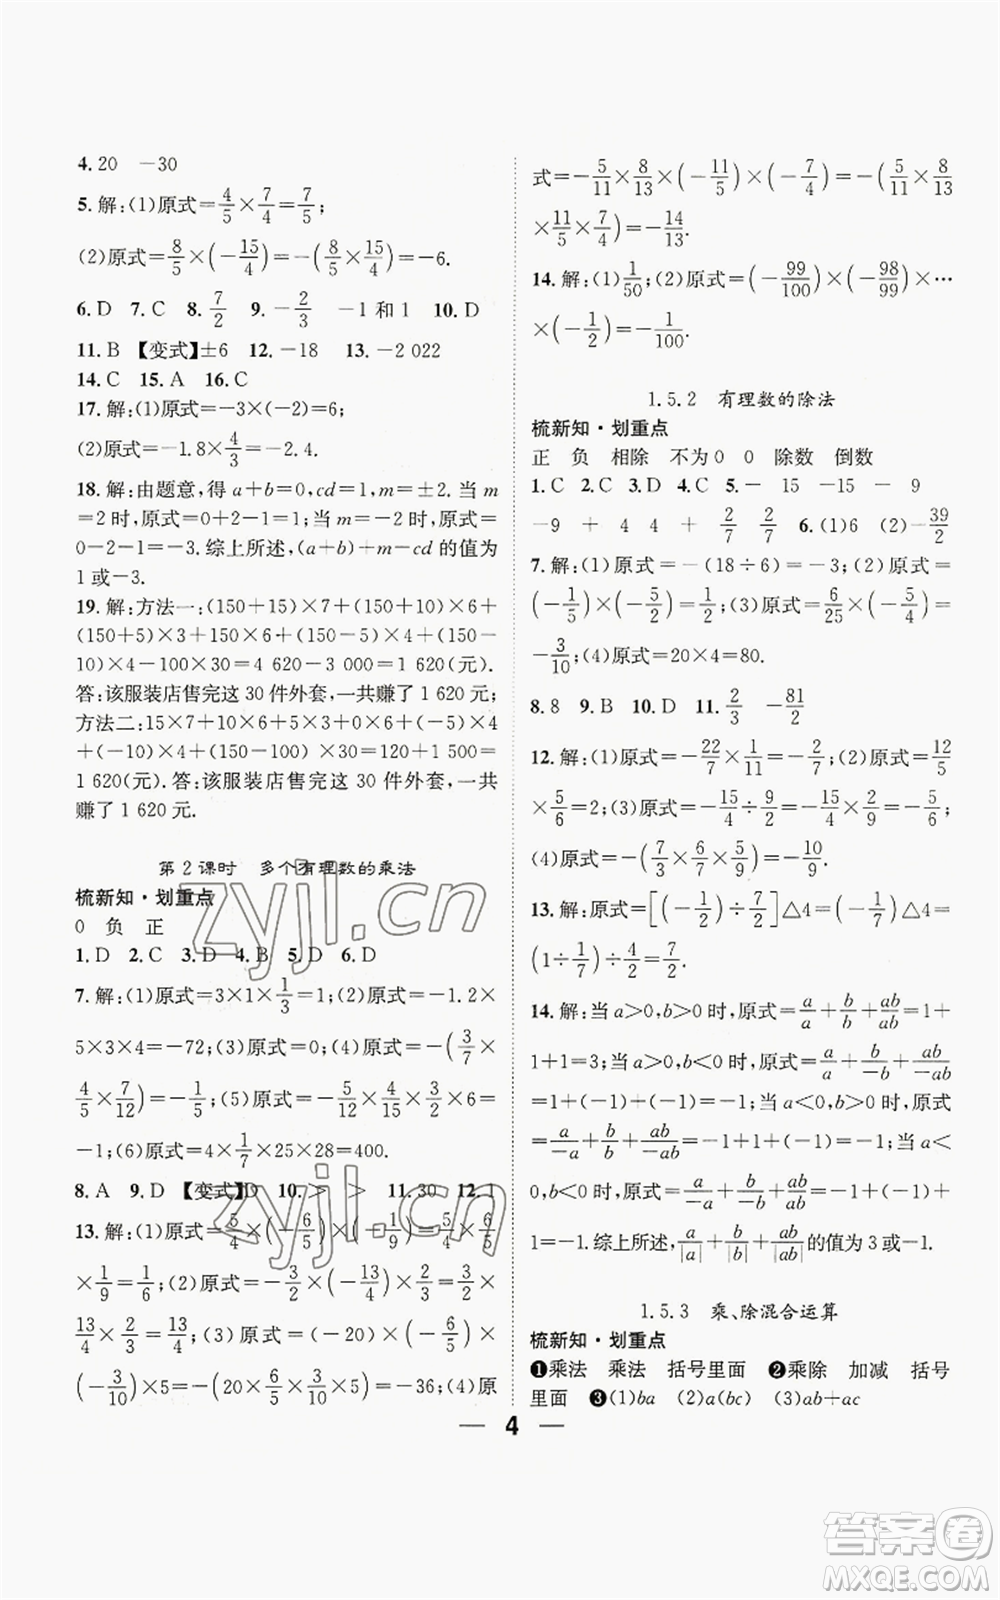 4.20　−30
5.解:(1)原式=4/5×7/4=7/5;
(2)原式=8/5×(−15/4)=−(8/5×15/4)=−6.
6.D　7.C　8.7/2　9.−2/3　−1和1　10.D
11.B　【变式】±6　12.−18　13.−2 022
14.C　15.A　16.C
17.解:(1)原式=−3×(−2)=6;
(2)原式=−1.8×4/3=−2.4.
18.解:由题意,得a+b=0,cd=1,m=±2.当m
=2时,原式=0+2−1=1;当m=−2时,原式=
0−2−1=−3.综上所述,(a+b)+m−cd的值为
1或−3.
19.解:方法一:(150+15)×7+(150+10)×6+
(150+5)×3+150×6+(150−5)×4+(150−
10)×4−100×30=4 620−3 000=1 620(元).
答:该服装店售完这30件外套,一共赚了1 620元;
方法二:15×7+10×6+5×3+0×6+(−5)×4
+(−10)×4+(150−100)×30=120+1 500=
1 620(元).答:该服装店售完这30件外套,一共
赚了1 620元.
第2课时　多个有理数的乘法
梳新知·划重点
0　负　正
1.D　2.C　3.D　4.B　5.D　6.D
7.解:(1)原式=3×1×1/3=1;(2)原式=−1.2×
5×3×4=−72;(3)原式=0;(4)原式=−(3/7×
4/5×7/12)=−1/5;(5)原式=−5/12×2/5×6=
−1;(6)原式=4×1/7×25×28=400.
8.A　9.D　【变式】D　10.>　>　11.30　12.−1
13.解:(1)原式=5/4×(−6/5)×(−1/9)=5/4×6/5
×1/9=1/6;(2)原式=−3/2×(−13/4)×2/3=3/2×
13/4×2/3=13/4;(3)原式=(−20)×6/5×
(−3/10)×5=−(20×6/5×3/10×5)=−36;(4)原
式=−5/11×8/13×(−11/5)×(−7/4)=−(5/11×8/13
×11/5×7/4)=−14/13.
14.解:(1)1/50;(2)原式=(−99/100)×(−98/99)×…
×(−1/2)=−1/100.
1.5.2　有理数的除法
梳新知·划重点
正　负　相除　不为0　0　除数　倒数
1.C　2.C　3.D　4.C　5.−　15　−15　−　9
−9　+　4　4　+　2/7　2/7　6.(1)6　(2)−39/2
7.解:(1)原式=−(18÷6)=−3;(2)原式=
(−1/5)×(−5/2)=1/2;(3)原式=6/25×(−5/4)=
−3/10;(4)原式=20×4=80.
8.8　9.B　10.D　11.2/3　−81/2
12.解:(1)原式=−22/7×1/11=−2/7;(2)原式=12/5
×5/6=2;(3)原式=−15/4÷9/2=−15/4×2/9=−5/6;
(4)原式=−(7/3×6/7×5/9)=−10/9.
13.解:原式=[(−1/2)÷7/2]△4=(−1/7)△4=
(1÷1/7)÷4=7/4.
14.解:当a>0,b>0时,原式=a/a+b/b+ab/ab=1+
1+1=3;当a>0,b<0时,原式=a/a+b/−b+ab/−ab
=1+(−1)+(−1)=−1;当a<0,b>0时,原式
=a/−a+b/b+ab/−ab=−1+1+(−1)=−1;当a<
0,b<0时,原式=a/−a+b/−b+ab/ab=−1+(−1)+
1=−1.综上所述,a/|a|+b/|b|+ab/|ab|的值为3或−1.
1.5.3　乘、除混合运算
梳新知·划重点
❶乘法　乘法　括号里面　❷乘除　加减　括号
里面　❸(1)ba　(2)a(bc)　(3)ab+ac
4
zyjl.cn
zyjl.cn
答案卷
MXQE.COM